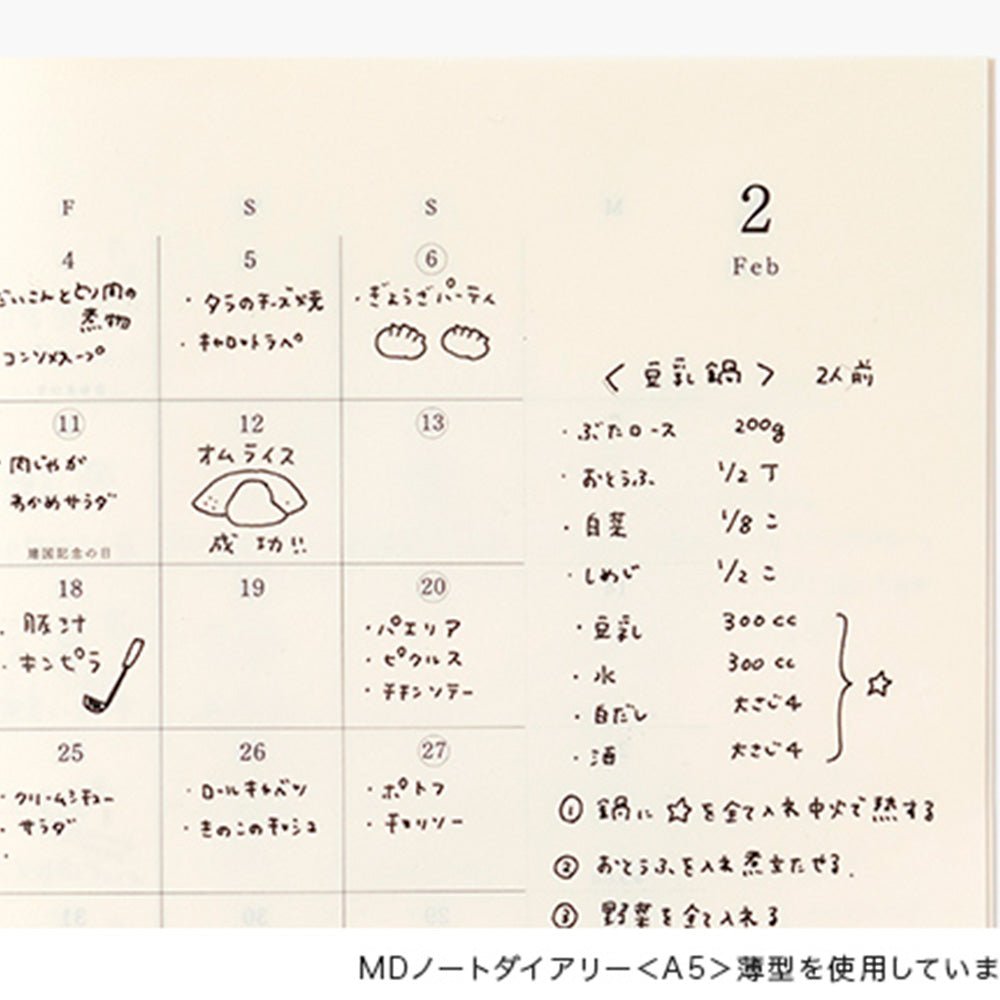 F S S
2
Feb
4 5 6
だいこんとひき肉の
煮物
コンソメスープ
・タラのチーズ焼
・キャロットラペ
・ぎょうざパーティ
11 12 13
・肉じゃが
わかめサラダ
建国記念の日
オムライス
成功!!
18 19 20
・豚汁
・キンピラ
・パエリア
・ピクルス
・チキンソテー
25 26 27
・クリームシチュー
・サラダ
・ロールキャベツ
・きのこのキッシュ
・ポトフ
・チョリソー
31 30 29
<豆乳鍋> 2人前
・ぶたロース 200g
・おとうふ 1/2丁
・白菜 1/8こ
・しめじ 1/2こ
・豆乳 300cc
・水 300cc
・白だし 大さじ4
・酒 大さじ4
☆
① 鍋に☆を全て入れ中火で熱する
② おとうふを入れ煮立たせる.
③ 野菜を全て入れる
MDノートダイアリー<A5>薄型を使用していま